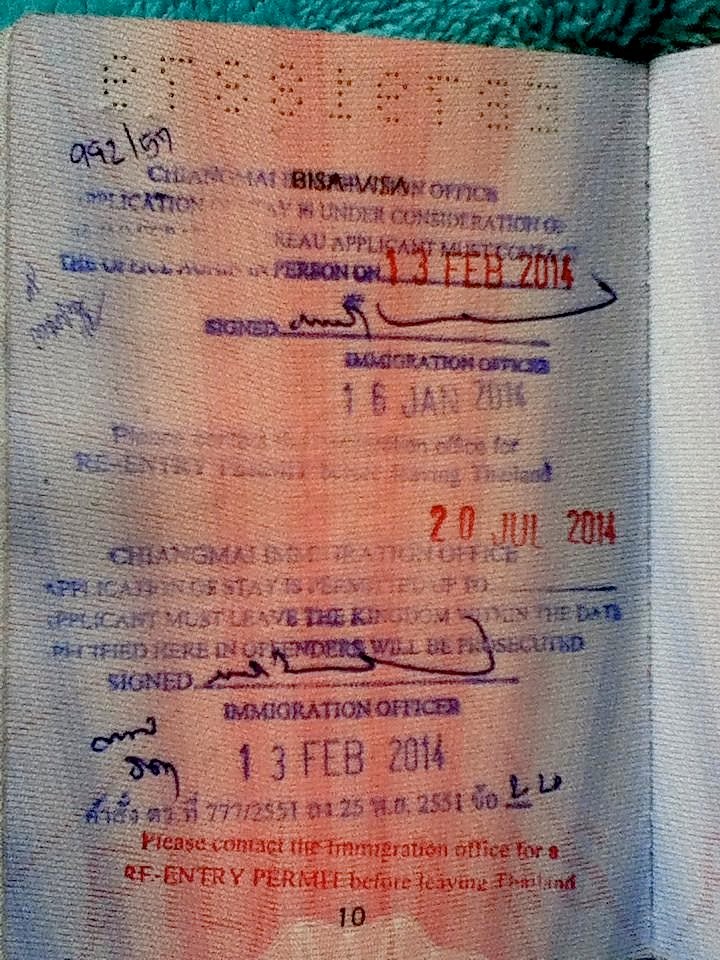 992/57
CHIANGMAI OFFICE
APPLICATION OF STAY IS UNDER CONSIDERATION OF
REAU APPLICANT MUST CONTACT
THE OFFICE AGAIN IN PERSON ON 13 FEB 2014
SIGNED
IMMIGRATION OFFICER
16 JAN 2014
Please contact the Immigration office for
RE-ENTRY PERMIT before leaving Thailand
20 JUL 2014
CHIANGMAI IMMIGRATION OFFICE
APPLICATION OF STAY IS PERMITTED UP TO
APPLICANT MUST LEAVE THE KINGDOM WITHIN THE DATE
SPECIFIED HERE IN OFFENDERS WILL BE PROSECUTED
SIGNED
IMMIGRATION OFFICER
13 FEB 2014
คำสั่ง ตร.ที่ 777/2551 ลง 25 พ.ย. 2551 ข้อ
Please contact the Immigration office for a
RE-ENTRY PERMIT before leaving Thailand
10